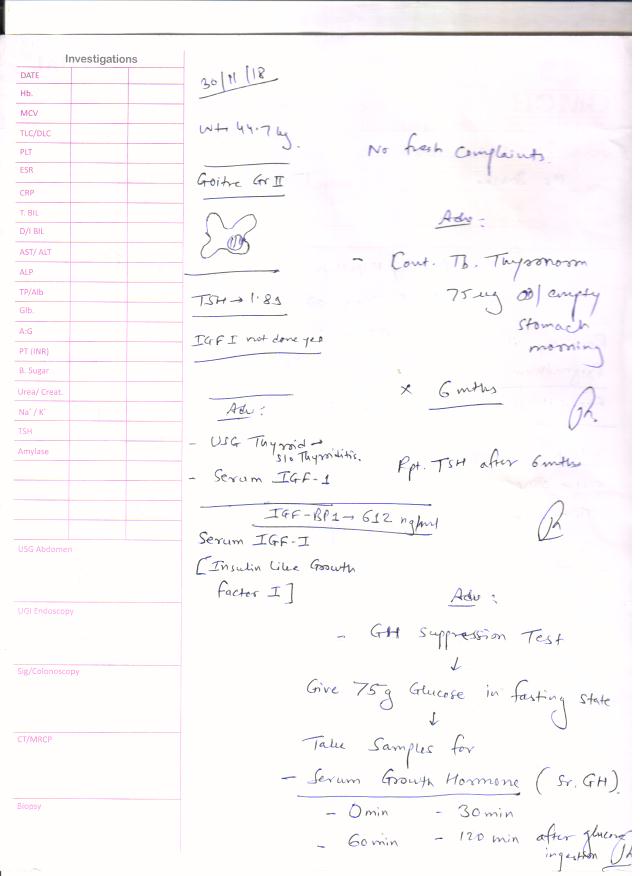 Investigations
DATE
Hb.
MCV
TLC/DLC
PLT
ESR
CRP
T. BIL
D/I BIL
AST/ ALT
ALP
TP/Alb
Glb.
A:G
PT (INR)
B. Sugar
Urea/ Creat.
Na⁺ / K⁺
TSH
Amylase
USG Abdomen
UGI Endoscopy
Sig/Colonoscopy
CT/MRCP
Biopsy
30/11/18
Wt → 44.7 kg.
Goitre Gr II
TSH → 1.89
IGF I not done yet
Adv:
- USG Thyroid →
s/o Thyroiditis.
- Serum IGF-1
IGF-BP1 → 612 ng/ml
Serum IGF-I
[Insulin Like Growth
Factor I]
No fresh complaints.
Adv:
- Cont. Tb. Thyronorm
75 ug OD/ empty
stomach
morning
x 6 mths
Rpt. TSH after 6 mths
Adv:
- GH Suppression Test
↓
Give 75g Glucose in fasting state
↓
Take Samples for
- Serum Growth Hormone (Sr. GH).
- 0 min - 30 min
- 60 min - 120 min after glucose
ingestion